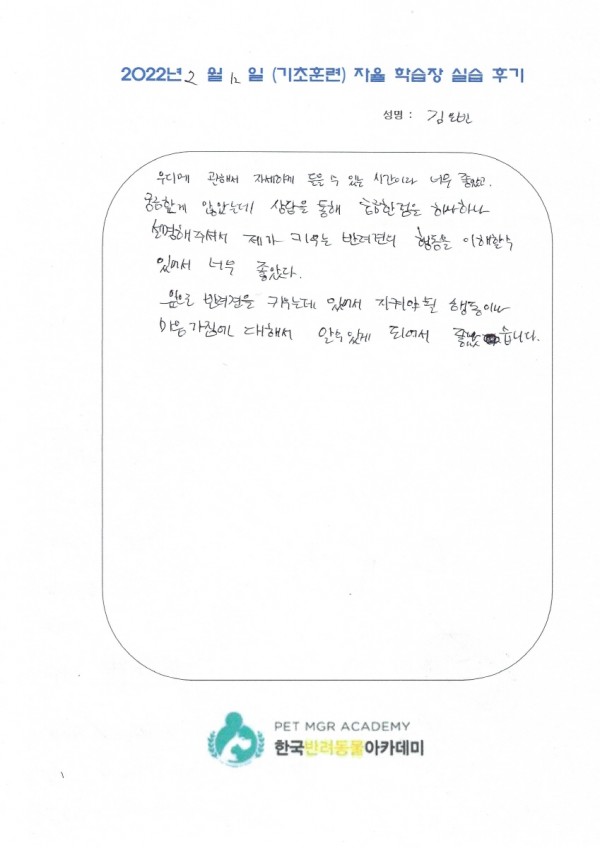 2022년 2 월 12 일 (기초훈련) 자율 학습장 실습 후기
성명 : 김
관해서 자세하게 들을 수 있는 시간이라 너무 좋았고.
궁금한게 많았는데 상담을 통해 궁금한점을 하나하나
설명해주셔서 제가 키우는 반려견의 행동을 이해할수
있어서 너무 좋았다.
앞으로 반려견을 키우는데 있어서 지켜야될 행동이나
마음가짐에 대해서 알수있게 되어서 좋았습니다.
PET MGR ACADEMY
한국반려동물아카데미